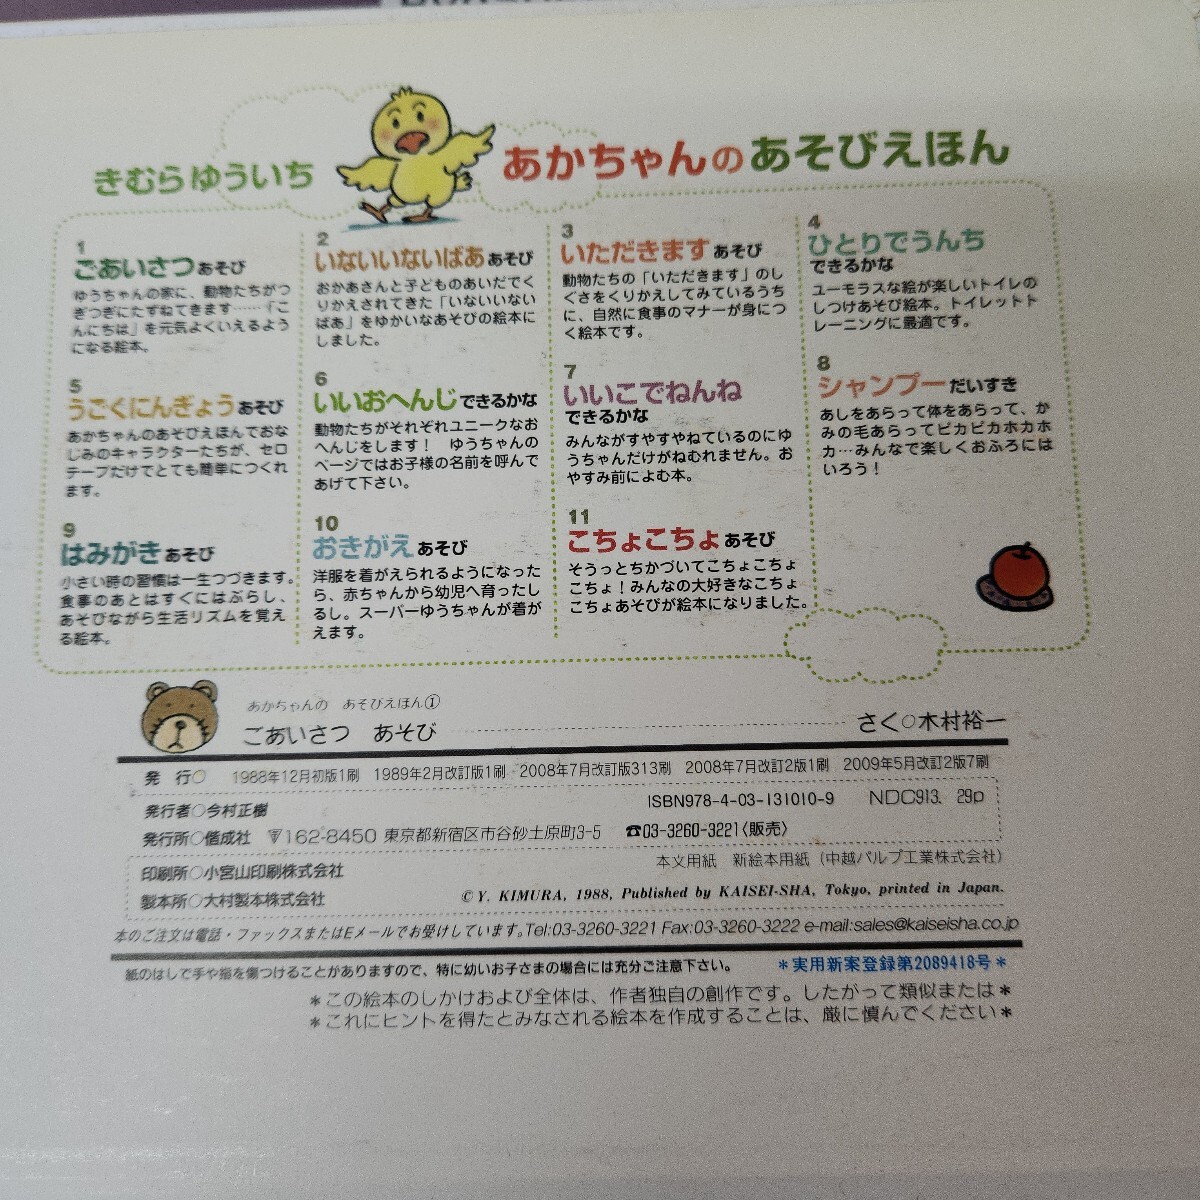 きむらゆういち
あかちゃんのあそびえほん
1
ごあいさつあそび
ゆうちゃんの家に、動物たちがつ
ぎつぎにたずねてきます……「こ
んにちは」を元気よくいえるよう
になる絵本。
2
いないいないばああそび
おかあさんと子どものあいだでく
りかえされてきた「いないいない
ばあ」をゆかいなあそびの絵本に
しました。
3
いただきますあそび
動物たちの「いただきます」のし
ぐさをくりかえしてみているうち
に、自然に食事のマナーが身につ
く絵本です。
4
ひとりでうんち
できるかな
ユーモラスな絵が楽しいトイレの
しつけあそび絵本。トイレットト
レーニングに最適です。
5
うごくにんぎょうあそび
あかちゃんのあそびえほんでおな
じみのキャラクターたちが、セロ
テープだけでとても簡単につくれ
ます。
6
いいおへんじできるかな
動物たちがそれぞれユニークなお
へんじをします！ ゆうちゃんの
ページではお子様の名前を呼んで
あげて下さい。
7
いいこでねんね
できるかな
みんながすやすやねているのにゆ
うちゃんだけがねむれません。お
やすみ前によむ本。
8
シャンプーだいすき
あしをあらって体をあらって、か
みの毛あらってピカピカホカホ
カ…みんなで楽しくおふろには
いろう！
9
はみがきあそび
小さい時の習慣は一生つづきます。
食事のあとはすぐにはぶらし、
あそびながら生活リズムを覚え
る絵本。
10
おきがえあそび
洋服を着がえられるようになった
ら、赤ちゃんから幼児へ育ったし
るし。スーパーゆうちゃんが着が
えます。
11
こちょこちょあそび
そうっとちかづいてこちょこちょ
こちょ！みんなの大好きなこちょ
こちょあそびが絵本になりました。
あかちゃんの あそびえほん①
ごあいさつ あそび さく○木村裕一
発 行○ 1988年12月初版1刷 1989年2月改訂版1刷 2008年7月改訂版313刷 2008年7月改訂2版1刷 2009年5月改訂2版7刷
発行者○今村正樹 ISBN978-4-03-131010-9 NDC913. 29p
発行所○偕成社 〒162-8450 東京都新宿区市谷砂土原町3-5 ☎03-3260-3221〈販売〉
印刷所○小宮山印刷株式会社 本文用紙 新絵本用紙（中越パルプ工業株式会社）
製本所○大村製本株式会社 © Y. KIMURA, 1988, Published by KAISEI-SHA, Tokyo, printed in Japan.
本のご注文は電話・ファックスまたはEメールでお受けしています。Tel:03-3260-3221 Fax:03-3260-3222 e-mail:sales@kaiseisha.co.jp
紙のはしで手や指を傷つけることがありますので、特に幼いお子さまの場合には充分ご注意下さい。 ＊実用新案登録第2089418号＊
＊この絵本のしかけおよび全体は、作者独自の創作です。したがって類似または＊
＊これにヒントを得たとみなされる絵本を作成することは、厳に慎んでください＊